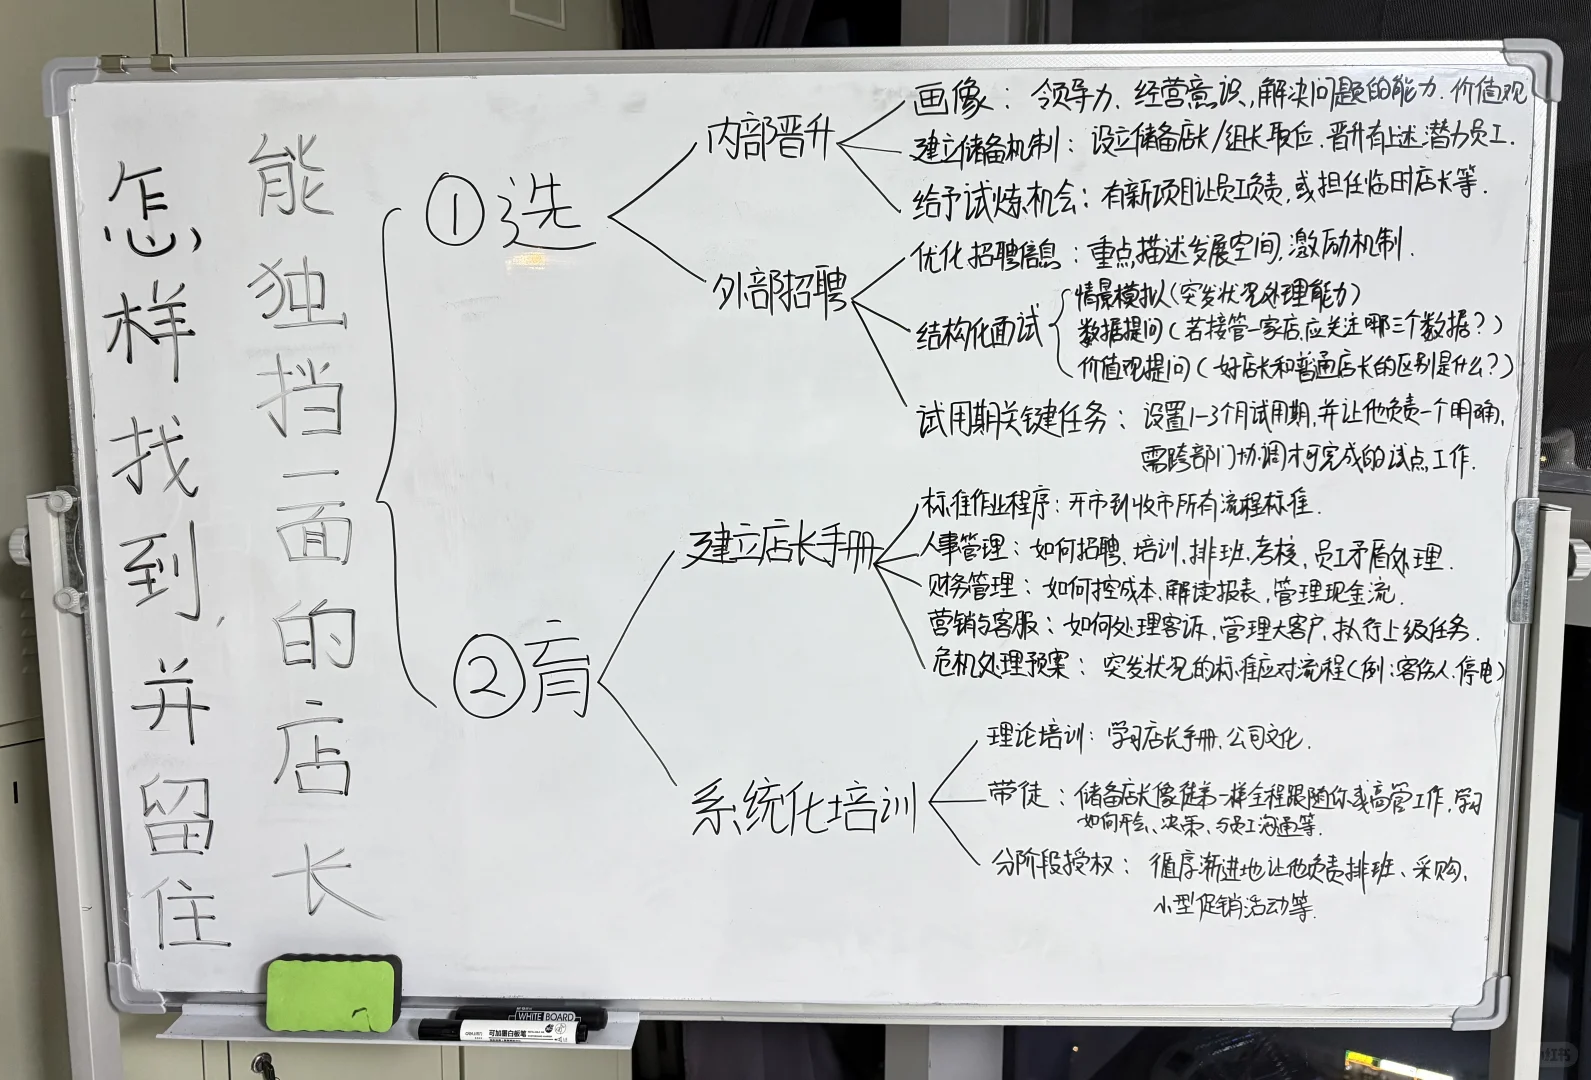 怎样找到,并留住
能独挡一面的店长
①选
内部晋升
画像：领导力、经营意识,解决问题的能力、价值观
建立储备机制：设立储备店长/组长职位、晋升有上述潜力员工.
给予试炼机会：有新项目让员工负责,或担任临时店长等.
外部招聘
优化招聘信息：重点描述发展空间,激励机制.
结构化面试
情景模拟(突发状况处理能力)
数据提问(若接管一家店,应关注哪三个数据?)
价值观提问(好店长和普通店长的区别是什么?)
试用期关键任务：设置1-3个月试用期,并让他负责一个明确,
需跨部门协调才可完成的试点工作.
②育
建立店长手册
标准作业程序：开市到收市所有流程标准.
人事管理：如何招聘、培训、排班、考核、员工矛盾处理.
财务管理：如何控成本、解读报表,管理现金流.
营销与客服：如何处理客诉,管理大客户,执行上级任务.
危机处理预案：突发状况的标准应对流程(例：客伤人、停电)
系统化培训
理论培训：学习店长手册、公司文化.
带徒：储备店长像徒弟一样全程跟随你或高管工作,学习
如何开会、决策、与员工沟通等.
分阶段授权：循序渐进地让他负责排班、采购、
小型促销活动等.
WHITE BOARD
可加墨白板笔